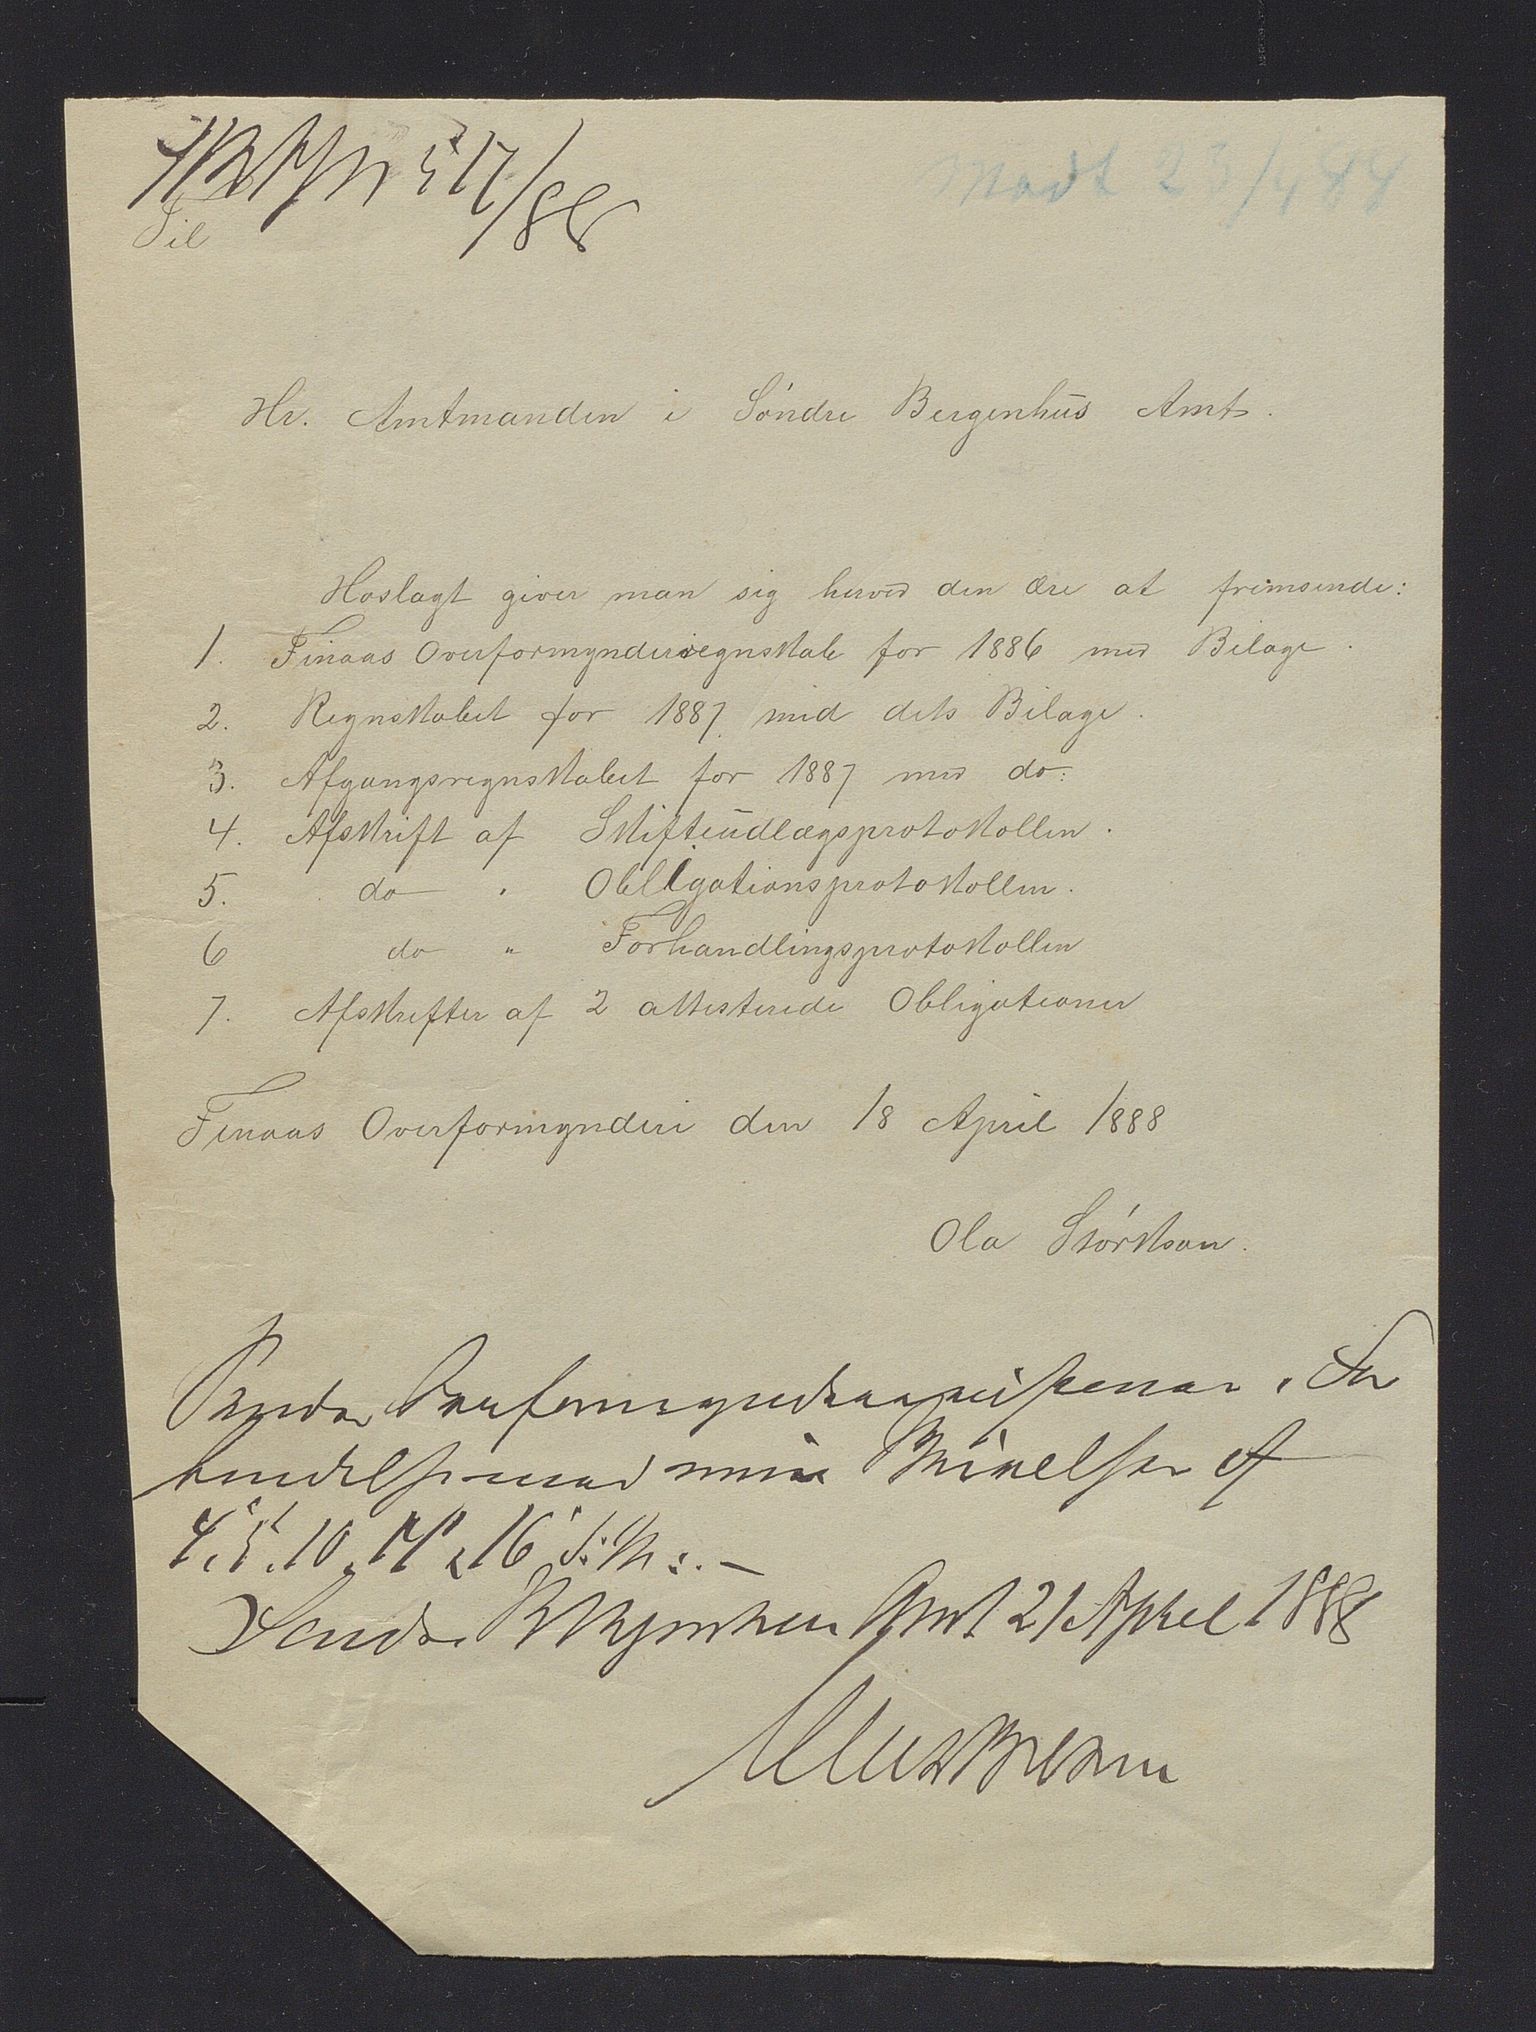 517/88
Modt 23/4 88
Til
Hr. Amtmanden i Søndre Bergenhus Amt.
Hoslagt giver man sig herved den Ære at fremsende:
1. Finaas Overformynderiregnskab for 1886 med Bilage.
2. Regnskabet for 1887 med dets Bilage.
3. Afgangsregnskabet for 1887 med do:
4. Afskrift af Skifteudlægsprotokollen.
5. do " Obligationsprotokollen.
6 do " Forhandlingsprotokollen
7. Afskrifter af 2 attesterede Obligationer
Finaas Overformynderi den 18 April 1888
Ola Størkson.
Sendes Overformynderrevisoren i For
bindelse med mine Skrivelser af
4, 5, 10, 14 & 16 d.M:. –
Søndre Bergenhus Amt 21 April 1888